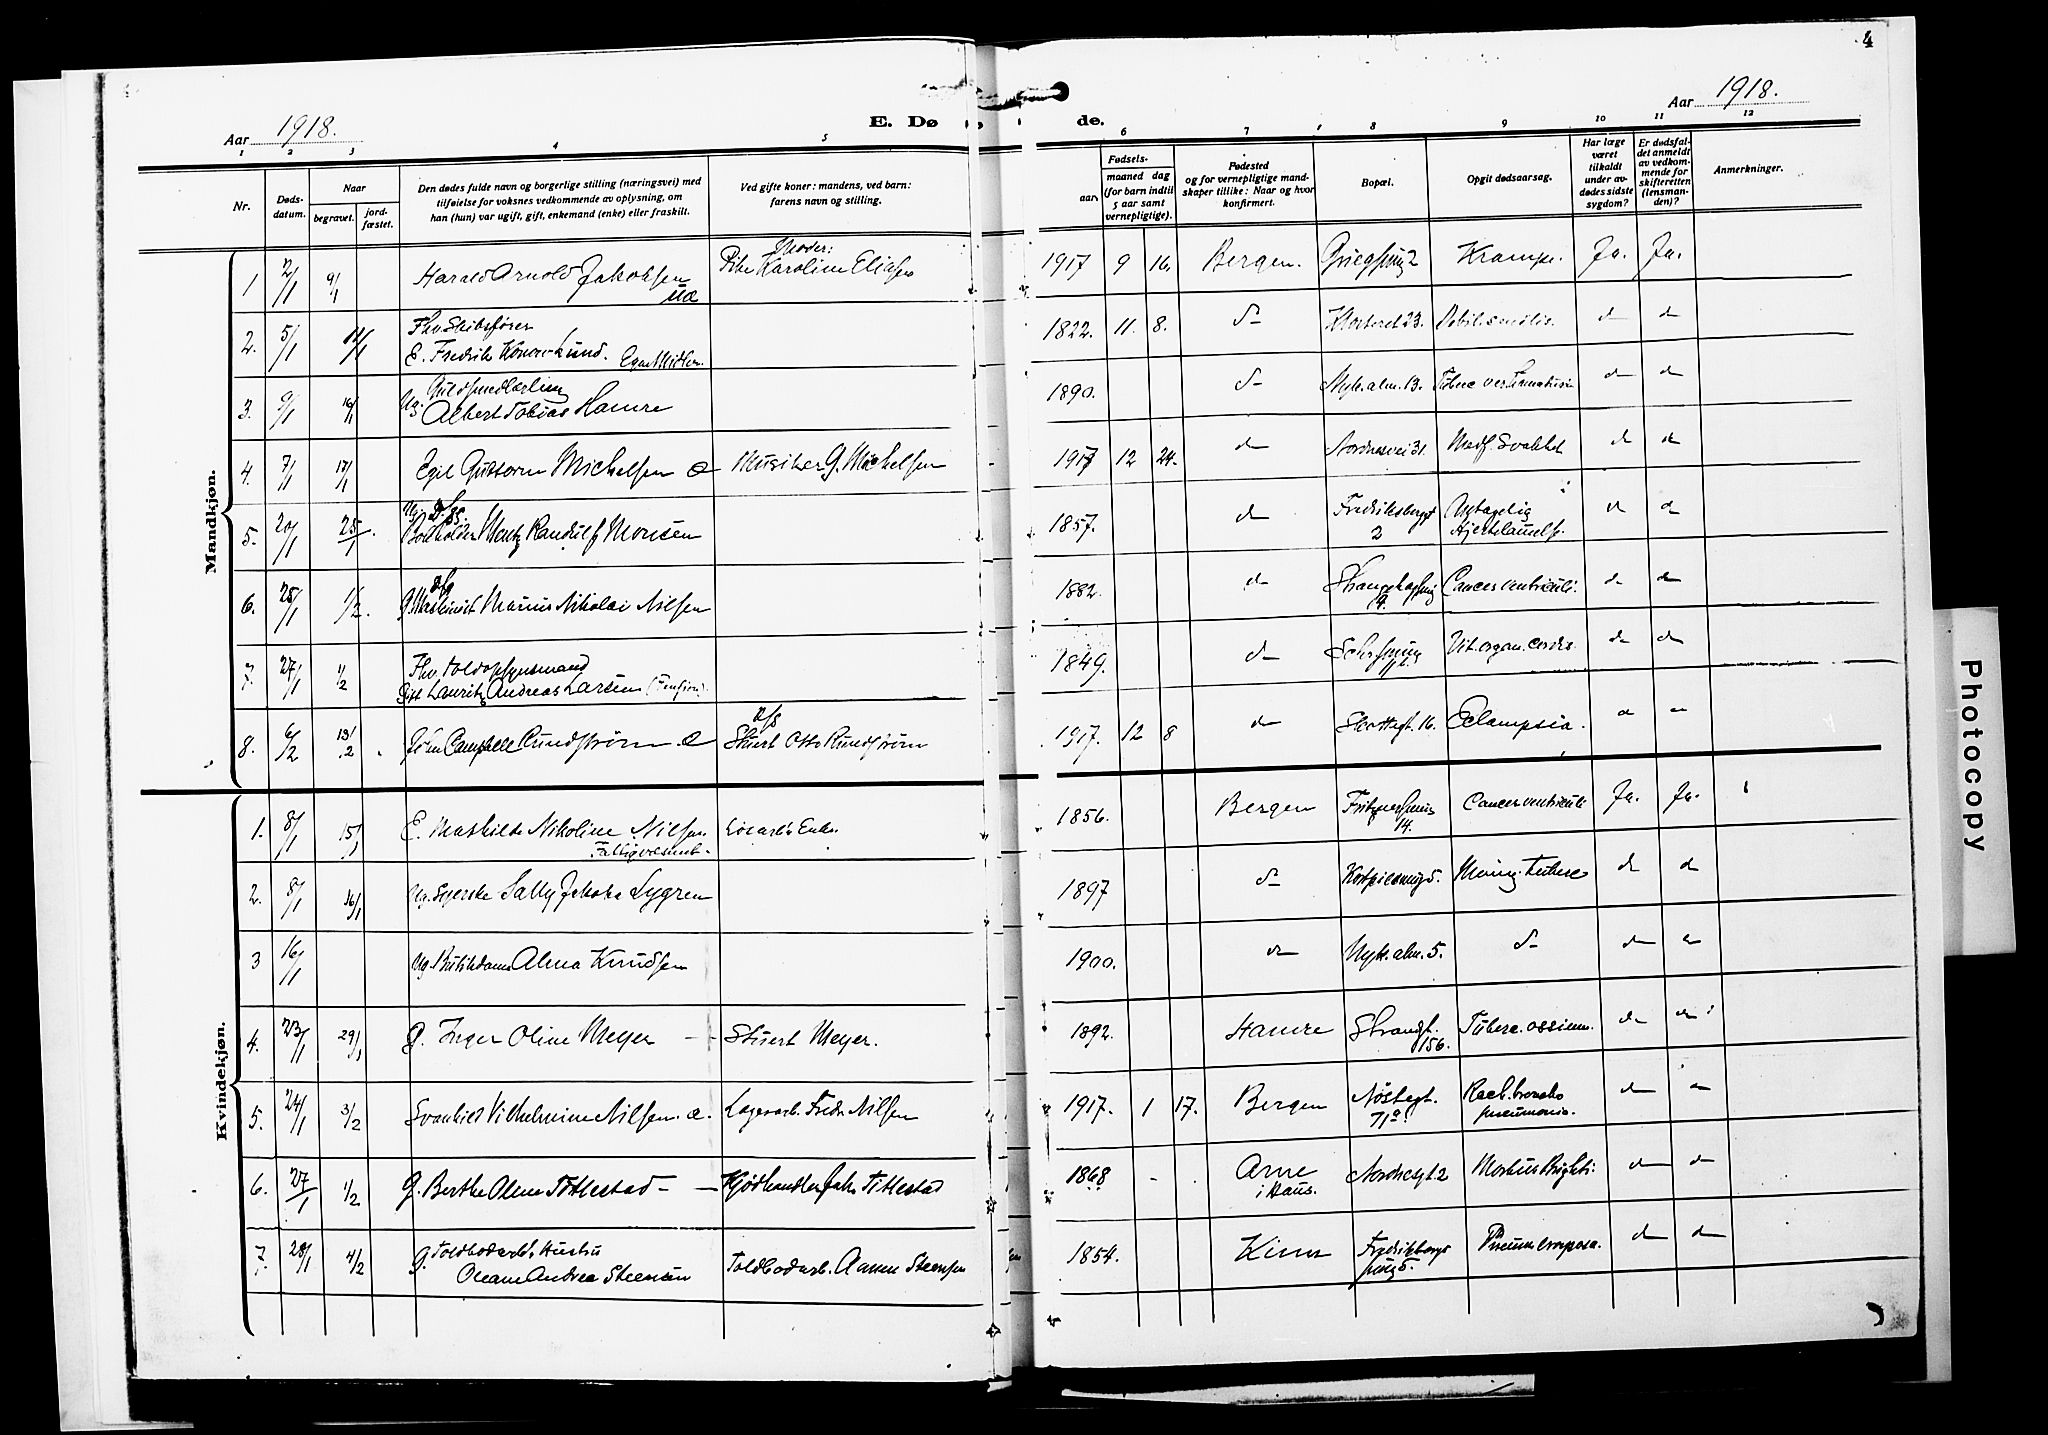 4
Aar 1918.
E. Dø de.
Aar 1918.
1 2 3 4 5 6 7 8 9 10 11 12
Nr.
Døds-
datum.
Naar
begravet.
jord-
fæstet.
Den dødes fulde navn og borgerlige stilling (næringsvei) med
tilføielse for voksnes vedkommende av oplysning, om
han (hun) var ugift, gift, enkemand (enke) eller fraskilt.
Ved gifte koner: mandens, ved barn:
farens navn og stilling.
Fødsels-
aar.
maaned dag
(for barn indtil
5 aar samt
vernepligtige).
Fødested
og for vernepligtige mand-
skaper tillike: Naar og hvor
konfirmert.
Bopæl.
Opgit dødsaarsag.
Har læge
været
tilkaldt
under av-
dødes sidste
sygdom?
Er dødsfal-
det anmeldt
av vedkom-
mende for
skifteretten
(lensman-
den)?
Anmerkninger.
Mandkjøn.
Moder:
1 2/1 9/1 Harald Arnold Jakobsen Pike Karoline Eliasen 1917 9 16. Bergen. Krampe. Ja. Ja.
uæ
Fhv. Skibsfører
2. 5/1 11/1 E. Fredrik Konow Lund. 1822. 11. 8. d- Klosteret 23. Debil. senilis. d d
Guldsmedlærling
3. 9/1 16/1 Ug. Albert Tobias Hamre 1890. d- Nyk. alm. 13. d d
4. 7/1 17/1 Egil Guttorm Michelsen æ Musiker G. Michelsen 1917 12 24. d Nordnesvei 31. Medf. Svakhet d d
Ug. D/S.
5. 20/1 25/1. Bokholder Mentz Randulf Monsen 1857. d Fredriksbergt. 2 d d
Hjertelammelse.
D/S
6. 25/1 1/2. G. Maskinist Marius Nikolai Nilsen 1882. d 9. Cancer ventriculi. d d
Fhv. Toldopsynsmand
7. 27/1 1/2 Gift Lauritz Andreas Larsen (Pension). 1849. d Vit. organ. cordis. d d
D/S
8. 6/2 13/2 John Campbell Rundstrøm. æ Stuert Otto Rundstrøm 1917. 12 8 d Skottegt. 16. Eclampsia. d d
Kvindekjøn.
1. 8/1 15/1 E. Mathilde Nikoline Nilsen 1856. Bergen 14. Cancer ventriculi Ja. Ja.
Fattigvæsenet.
2. 8/1 16/1 Ug. Syerske Sally Jakoba Lygren 1897 d- Mening. tuberc d d
3 16/1 Ug. Butikdame Alma Knudsen 1900. d Nyk. alm. 5. d- d d
4. 23/1 29/1 G. Inger Oline Meyer - - Stuert Meyer. 1892. Hamre Strandgt. 156. Tuberc. ossium. d d
5. 24/1 3/2 Svanhild Vilhelmine Nilsen. æ. Lagerarb. Fredr. Nilsen 1917. 1 17. Bergen Nøstegt. 71a. d d
pneumonia.
6. 27/1 1/2 G. Berthe Oline Tittlestad - - Kjødhandler Jak. Tittlestad 1868 Arne i Haus. Nordnesgt. 2 Morbus Brighti. d d
7. 28/1 4/2 G. Toldbodarb. Hustru
Oleane Andrea Steensen Toldbodarb. Steensen 1854. Kinn 5. d d
Photocopy